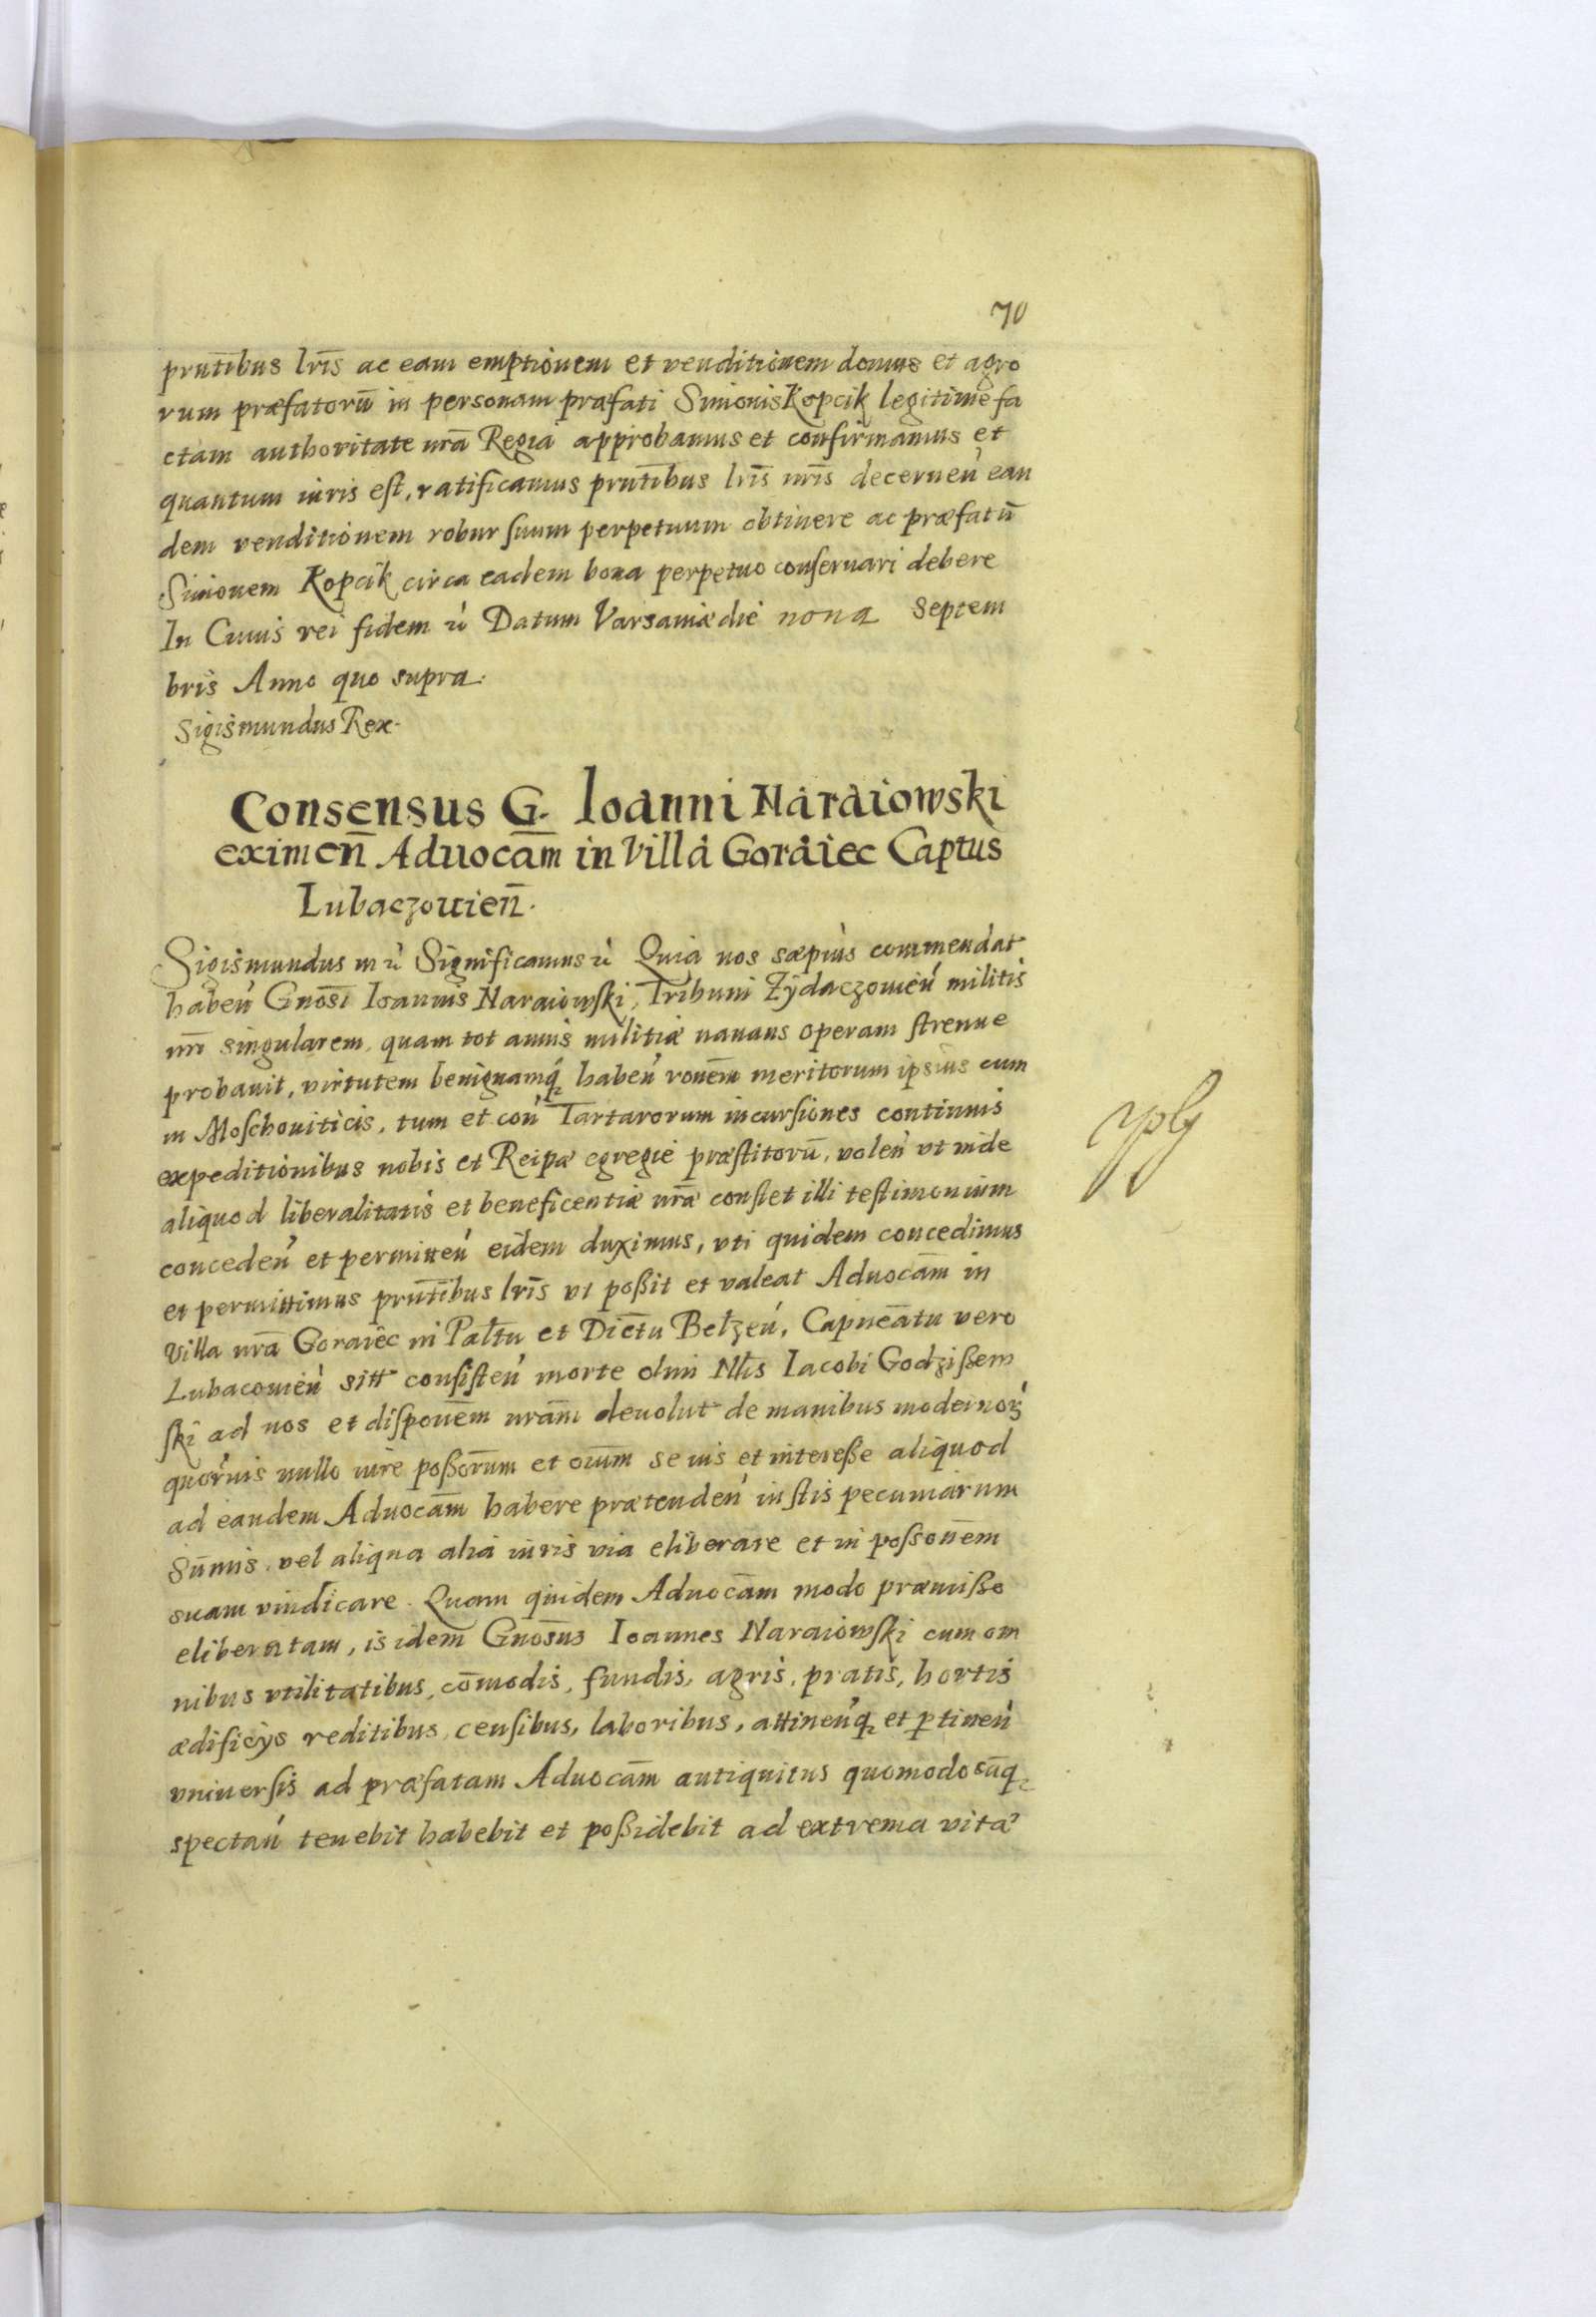 70
prntibus lris ac eam emptionem et venditionem domus et agro
rum præfatorū in personam præfati Simonis Kopcik legitime fa
ctam authoritate nrā Regia approbamus et confirmamus et
quantum iuris est, ratificamus prntibus lris nris decernen ean
dem venditionem robur suum perpetuum obtinere ac præfatū
Simonem Kopcik circa eadem bona perpetuo conseruari debere
In Cuius rei fidem ꝛ Datum Varsauiæ die nona Septem
bris Anno quo supra.
Sigismundus Rex.
Consensus G. Ioanni Naraiowski
eximen̄ Aduocām in Villa Goraiec Captus
Lubaczouien̄.
Sigismundus III ꝛ Significamus ꝛ Quia nos sæpius commendat
haben Gnosi Ioannis Naraiowski, Tribuni Zydaczouien militis
nri singularem, quam tot annis militiæ nauans operam strenue
probauit, virtutem benignamq haben ronēm meritorum ipsius cum
in Moschouiticis, tum et con Tartarorum incursiones continuis
expeditionibus nobis et Reipæ egregie præstitorū, volen vt inde
aliquod liberalitatis et beneficentiæ nræ constet illi testimonium
conceden et permitten eidem duximus, vti quidem concedimus
et permittimus prntibus lris vt poßit et valeat Aduocām in
Villa nrā Goraiec in Paltu et Dictu Belzen, Capneātu vero
Lubacouien sitt consisten morte olim Nlis Iacobi Godzißem
ski ad nos et disponēm nram deuolut de manibus modernoꝝ
quoruis nullo iure poßorum et oium se ius et intereße aliquod
ad eandem Aduocām habere prætenden iustis pecuniarum
Sūmis, vel aliqua alia iuris via eliberare et in possonēm
suam vindicare. Quam quidem Aduocām modo præmißo
eliberatam, is idem Gnosus Ioannes Naraiowski cum om
nibus vtilitatibus, cōmodis, fundis, agris, pratis, hortis
ædificijs reditibus, censibus, laboribus, attinenq et ptinen
vniuersis ad præfatam Aduocām antiquitus quomodocūq
spectan tenebit habebit et poßidebit ad extrema vitæ